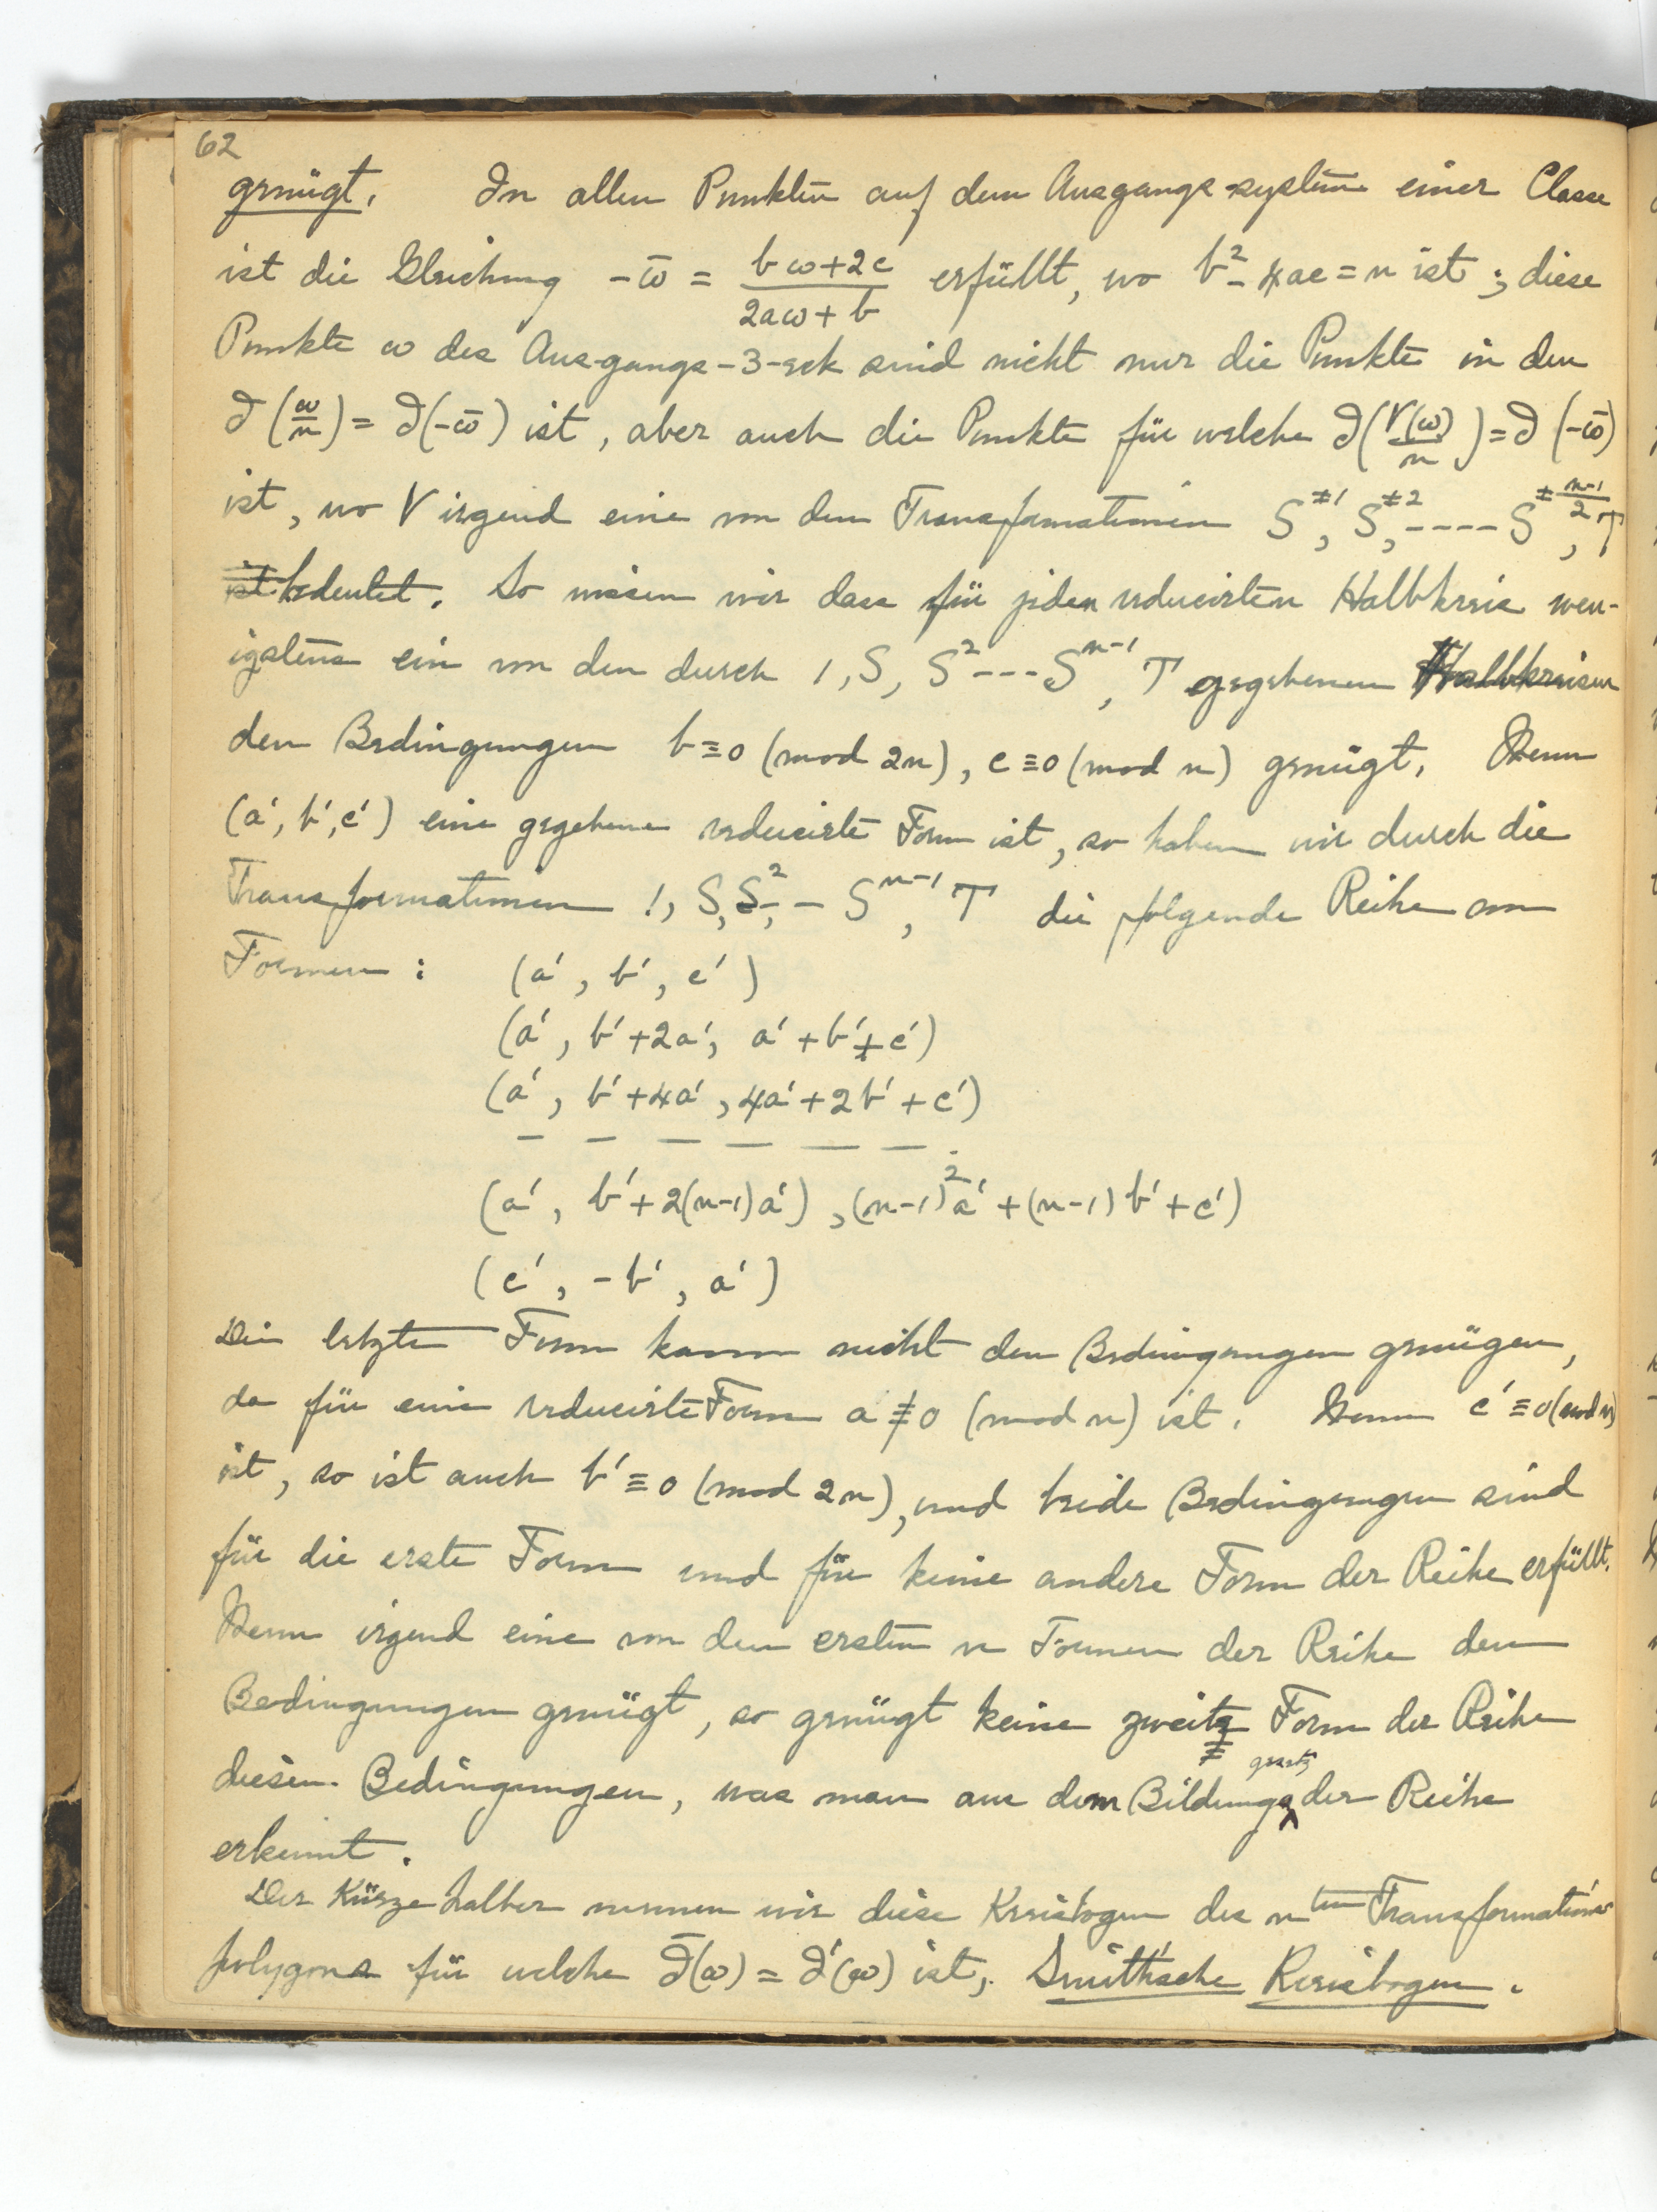 62
genügt. In allen Punkten auf dem Ausgangs-system einer Classe
ist die Gleichung -ω̄ = (bω+2c)/(2aω+b) erfüllt, wo b²-4ac=n ist; diese
Punkte ω des Ausgangs-3-eck sind nicht nur die Punkte in den
J(ω/n) = J(-ω̄) ist, aber auch die Punkte für welche J(V(ω)/n) = J(-ω̄)
ist, wo V irgend eine von den Transformationen S^±1, S^±2, ---- S^±(n-1)/2, T
ist bedeutet. So wissen wir dass für jeden reducirten Halbkreis wen-
igstens ein von den durch 1, S, S² --- S^n-1, T gegebenen Halbkreisen
den Bedingungen b≡0 (mod 2n), c≡0 (mod n) genügt. Wenn
(a', b', c') eine gegebene reducirte Form ist, so haben wir durch die
Transformationen 1, S, S², -- S^n-1, T die folgende Reihe von
Formen : (a', b', c')
(a', b'+2a', a'+b'+c')
(a', b'+4a', 4a'+2b'+c')
— — — — — —
(a', b'+2(n-1)a'), (n-1)²a'+(n-1)b'+c')
(c', -b', a')
Die letzte Form kann nicht den Bedingungen genügen,
da für eine reducirte Form a≢0 (mod n) ist. Wenn c'≡0 (mod n)
ist, so ist auch b'≡0 (mod 2n), und beide Bedingungen sind
für die erste Form und für keine andere Form der Reihe erfüllt.
Wenn irgend eine von den ersten n Formen der Reihe den
Bedingungen genügt, so genügt keine zweite Form der Reihe
diesen Bedingungen, was man aus dem Bildungsgesetz der Reihe
erkennt.
Der Kürze halber nennen wir diese Kreisbogen des n^ten Transformations
polygons für welche J̄(ω) = J'(ω) ist, Smith'sche Kreisbogen.